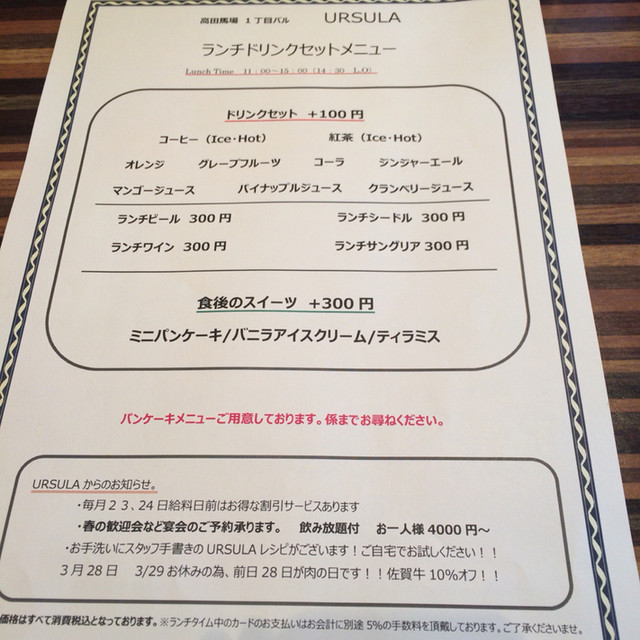 高田馬場 1丁目バル URSULA
ランチドリンクセットメニュー
Lunch Time 11:00～15:00（14:30 L.O）
ドリンクセット +100円
コーヒー（Ice・Hot） 紅茶（Ice・Hot）
オレンジ グレープフルーツ コーラ ジンジャーエール
マンゴージュース パイナップルジュース クランベリージュース
ランチビール 300円 ランチシードル 300円
ランチワイン 300円 ランチサングリア300円
食後のスイーツ +300円
ミニパンケーキ/バニラアイスクリーム/ティラミス
パンケーキメニューご用意しております。係までお尋ねください。
URSULAからのお知らせ。
・毎月23、24日給料日前はお得な割引サービスあります
・春の歓迎会など宴会のご予約承ります。 飲み放題付 お一人様4000円～
・お手洗いにスタッフ手書きのURSULAレシピがございます！ご自宅でお試しください！！
3月28日 3/29お休みの為、前日28日が肉の日です！！佐賀牛10％オフ！！
価格はすべて消費税込となっております。※ランチタイム中のカードのお支払いはお会計に別途5%の手数料を頂戴しております。ご了承くださいませ。